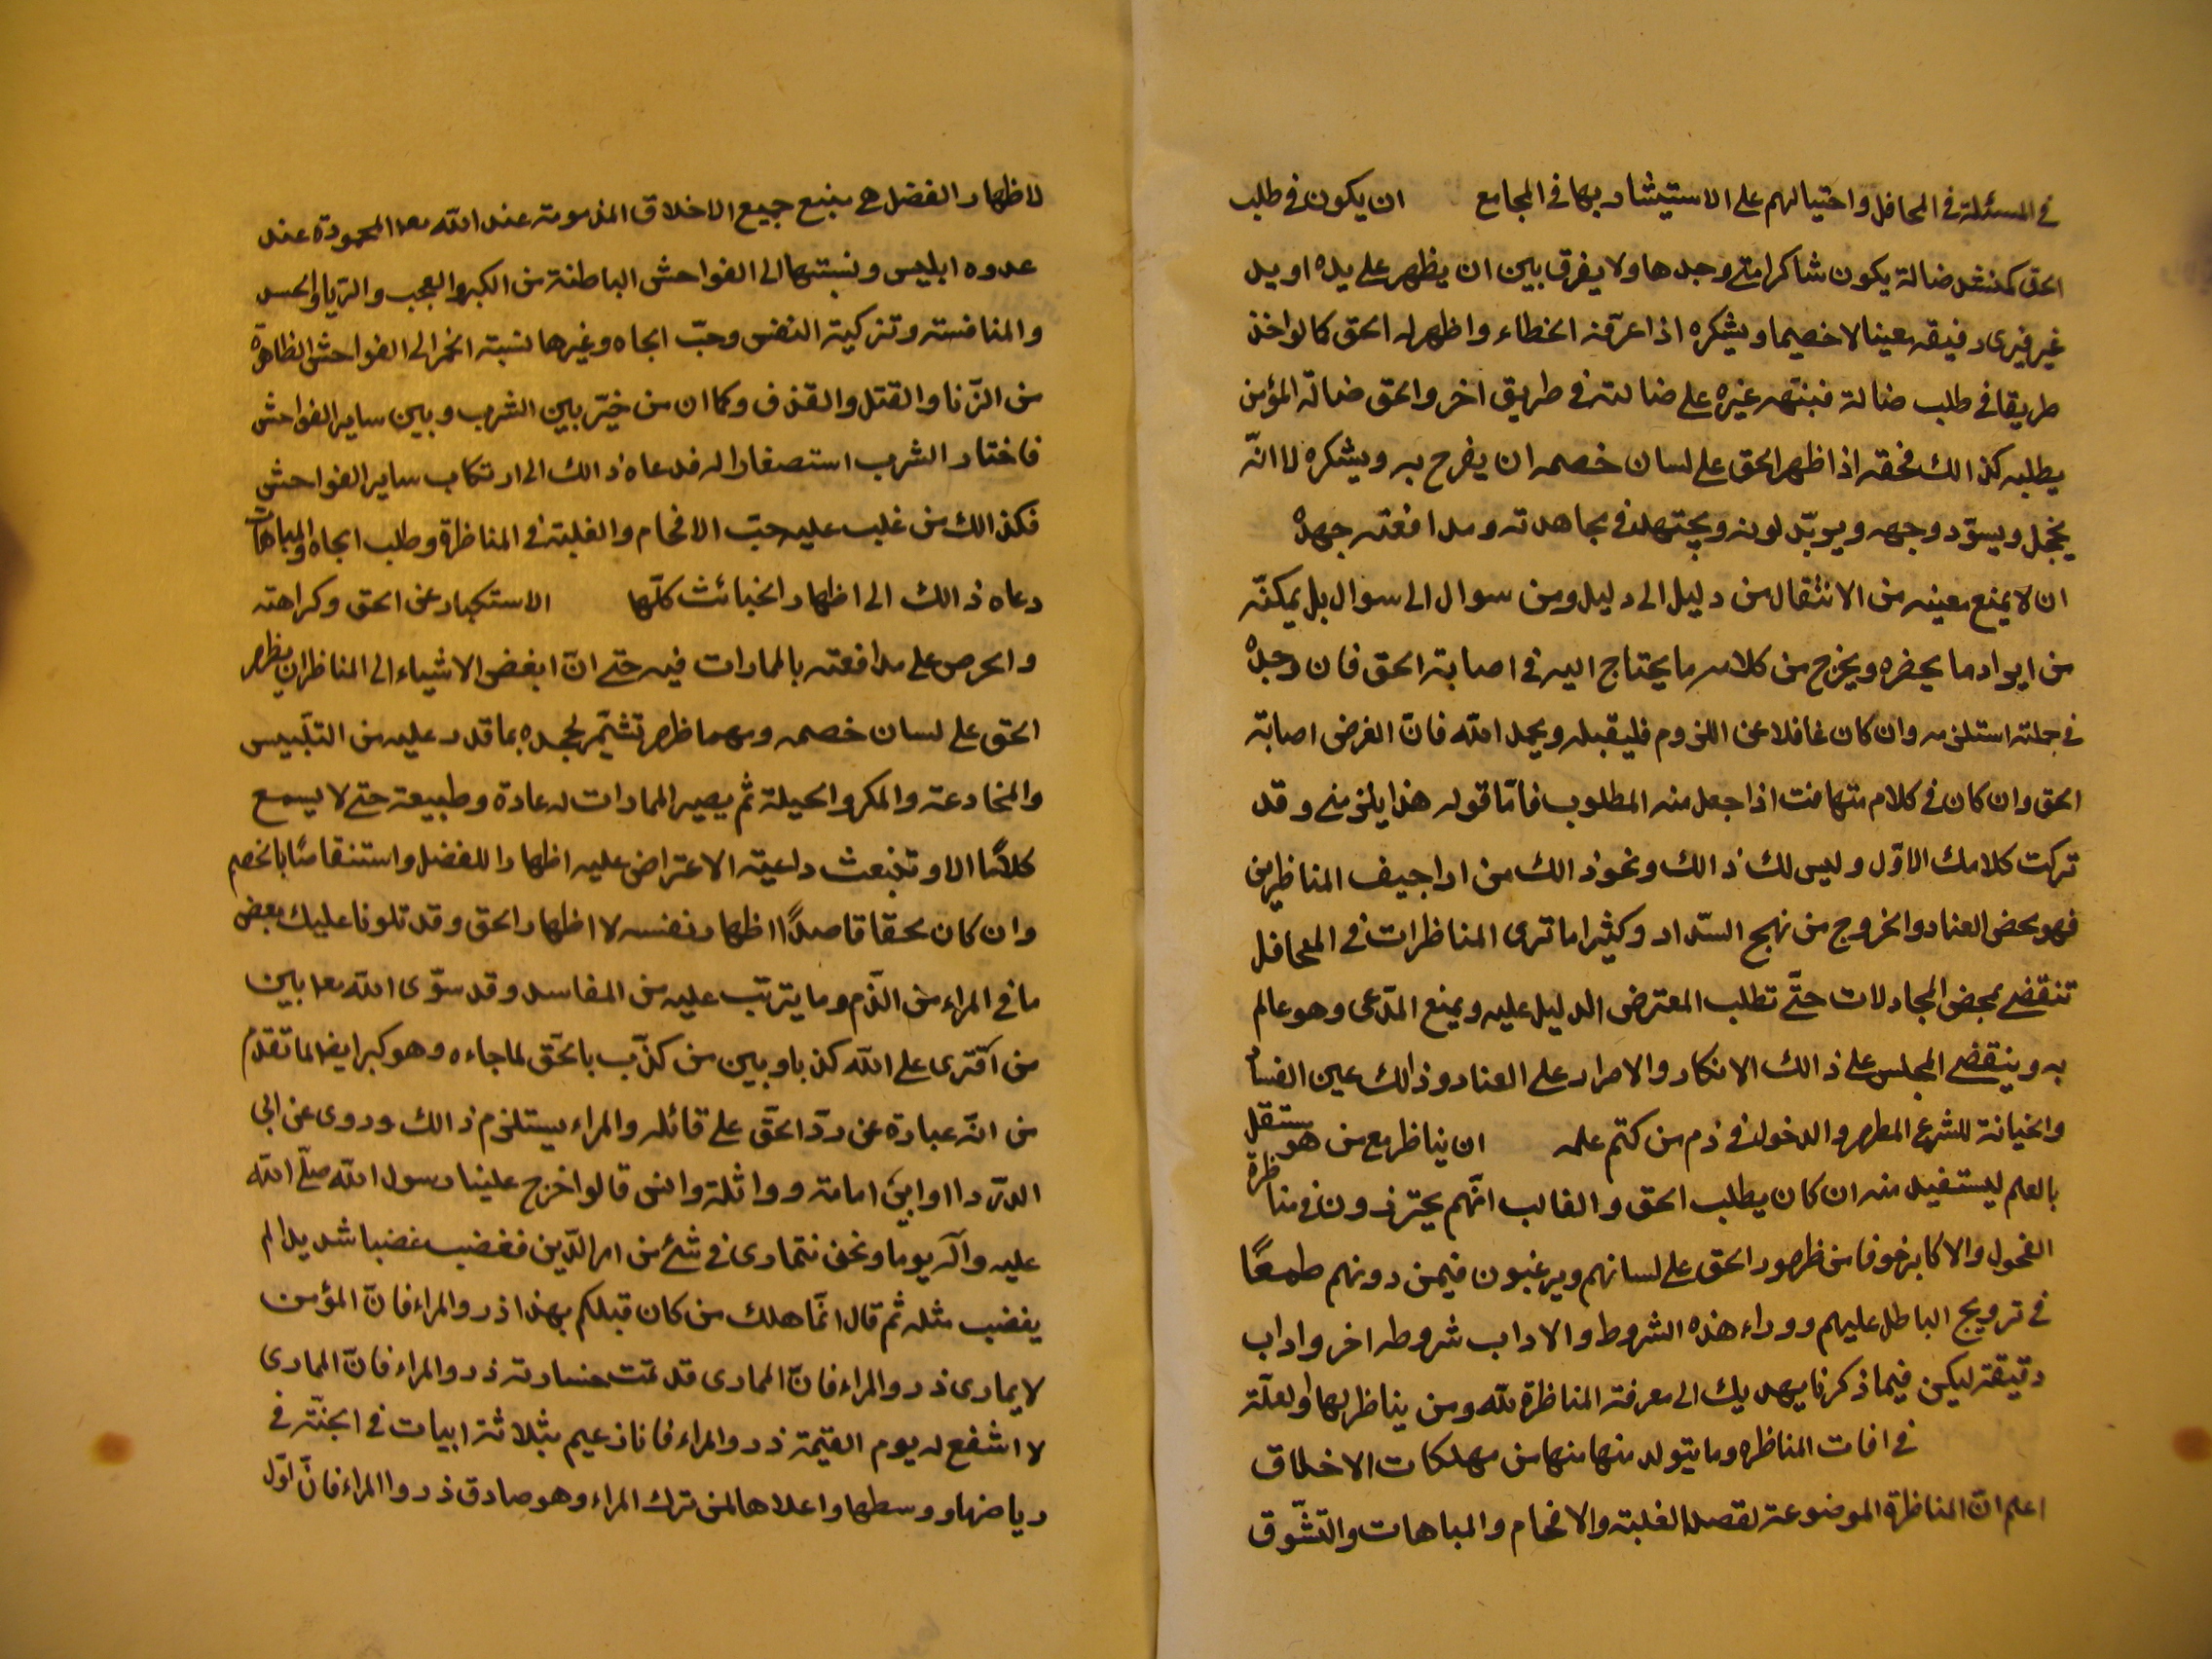 في المسئلة في المحافل واحتيالهم على الاستيشار بها في المجامع ان يكون في طلب
الحق كمنشد ضالة يكون شاكرا متى وجدها ولا يفرق بين ان يظهر على يده او يد
غيره فيرى رفيقه معينا لا خصيما ويشكره اذا عرّفه الخطاء واظهر له الحق كما لو اخذ
طريقا في طلب ضالة فنبّهه غيره على ضالته في طريق اخر والحق ضالة المؤمن
يطلبه كذالك فحقه اذا ظهر الحق على لسان خصمه ان يفرح به ويشكره لا انّه
يخجل ويسوّد وجهه ويوبّد لونه ويجتهد في مجاهدته ومدافعته جهده
ان لا يمنع معينه من الانتقال من دليل الى دليل ومن سوال الى سوال بل يمكنّه
من ايراد ما يحضره ويخرج من كلامه ما يحتاج اليه في اصابة الحق فان وجده
في جملته استلزمه وان كان غافلا عن اللزوم فليقبله ويحمد الله فانّ الغرض اصابة
الحق وان كان في كلام متهافت اذا حصل منه المطلوب فامّا قوله هذا يلزمني وقد
تركت كلامك الاوّل وليس لك ذالك ونحو ذالك من اراجيف المناظرين
فهو محض العناد والخروج من نهج السّداد وكثيرا ما ترى المناظرات في المحافل
تنقضي بمحض المجادلات حتّى تطلب المعترض الدليل عليه ويمنع المدّعى وهو عالم
به وينقضي المجلس على ذالك الانكار والاصرار على العناد وذالك عين الفساد
والخيانة للشرع المطهر والدخول في ذم من كتم علمه ان يناظر مع من هو مستقل
بالعلم ليستفيد منه ان كان يطلب الحق والغالب انّهم يحترزون في مناظرة
الفحول والاكابر خوفا من ظهور الحق على لسانهم ويرغبون فيمن دونهم طمعًا
في ترويج الباطل عليهم ووراء هذه الشروط والاداب شروط اخر واداب
دقيقة ليكن فيما ذكرنا يهديك الى معرفة المناظرة لله ومن يناظر لها او لعلّة
في افات المناظره وما يتولد منها منها من مهلكات الاخلاق
اعلم انّ المناظرة الموضوعة لقصد الغلبة والافحام والمباهات والتشّوق
لاظهار الفضل هي منبع جميع الاخلاق المذمومة عند الله تعا المحمودة عند
عدوه ابليس ونسبتها الى الفواحش الباطنة من الكبر والعجب والرّيا والحسد
والمنافسته وتزكية النفس وحبّ الجاه وغيرها نسبة الخمر الى الفواحش الظاهرة
من الزّنا والقتل والقذف وكما ان من خيّر بين الشرب وبين ساير الفواحش
فاختار الشرب استصغارا له فدعاه ذالك الى ارتكاب ساير الفواحش
فكذالك من غلب عليه حبّ الافحام والغلبة في المناظرة وطلب الجاه والمباهات
دعاه ذالك الى اظهار الخبائث كلّها الاستكبار عن الحق وكراهته
والحرص على مدافعته بالممارات فيه حتى انّ ابغض الاشياء الى المناظر ان يظهر
الحق على لسان خصمه ومهما ظهر تشمّر لجحده بما قدر عليه من التلّبيس
والمخادعة والمكر والحيلة ثم يصير الممارات له عادة وطبيعة حتى لا يسمع
كلامًا الا وتنبعث داعية الاعتراض عليه اظهارا للفضل واستنقاصًا بالخصم
وان كان محقا قاصدًا اظهار نفسه لا اظهار الحق وقد تلونا عليك بعض
ما في المراء من الذّم وما يترتب عليه من المفاسد وقد سوّى الله تعا بين
من افترى على الله كذبا وبين من كذّب بالحّق لما جاءه وهو كبر ايضا لما تقدم
من انّه عبارة عن ردّ الحقّ على قائله والمراء يستلزم ذالك وروى عن ابي
الدّردا او ابيَ امامة وواثلة وانس قالوا خرج علينا رسول الله صلّى الله
عليه وآله يوما ونحن نتمارى في شئ من امر الدّين فغضب غضبا شديدا لم
يغضب مثله ثم قال انّما هلك من كان قبلكم بهذا ذروا المراء فانّ المؤمن
لا يمارى ذروا المراء فانّ الممارى قد تمت خسارته ذروا المراء فانّ الممارى
لا اشفع له يوم القيمة ذروا المراء فانا زعيم بثلاثة ابيات في الجنّة في
رياضها ووسطها واعلاها لمن ترك المراء وهو صادق ذروا المراء فانّ اوّل